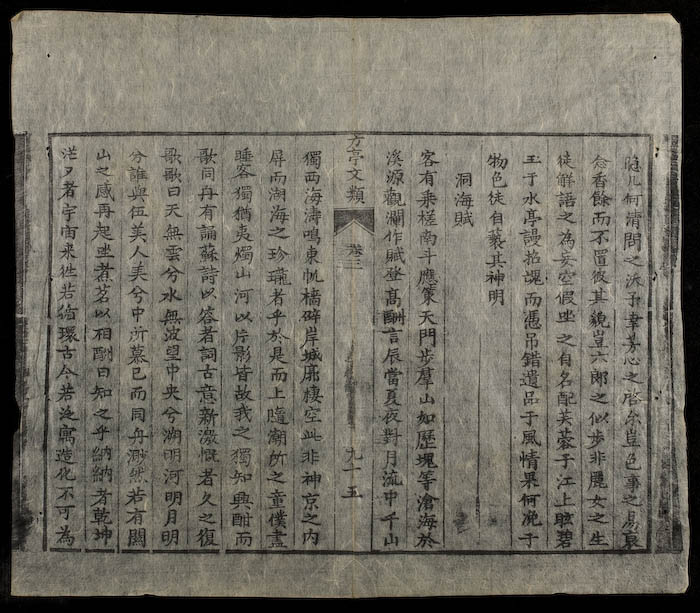 隐几何清問之泝予韋芳心之啓尔豈色事之易衰
念香餘而不置彼其貌豈六郎之似步非麗女之生
徒解語之為妄空假㘴之有名配芙蓉于江上眩碧
玉于水亭謾招䰟而憑吊錯遺品于風情果何凂于
物色徒自䙝其神明
洞海賦
客有乗槎南斗應策天門步羣山如歷塊等滄海於
溪源觀瀾作賦登髙酬言辰當夏夜對月流中千山
方亭文類
卷三
九十五
獨西海濤鳴東帆檣碎岸城廓棲空此非神京之内
屏而湖海之珍瓏者乎於是而上隨潮所之童僕盡
睡客獨猶夷燭山河以片影皆故我之獨知興酣而
歌同舟有誦蘇詩以客者詞古意新激慨者久之復
歌歌曰天無雲兮水無波望中央兮溯明河明月明
兮誰與伍美人美兮中所慕已而同舟渺然若有關
山之感再起㘴煮茗以相酬曰知之乎納納者乾坤
茫々者宇宙来徃若循環古今若泛寓造化不可為